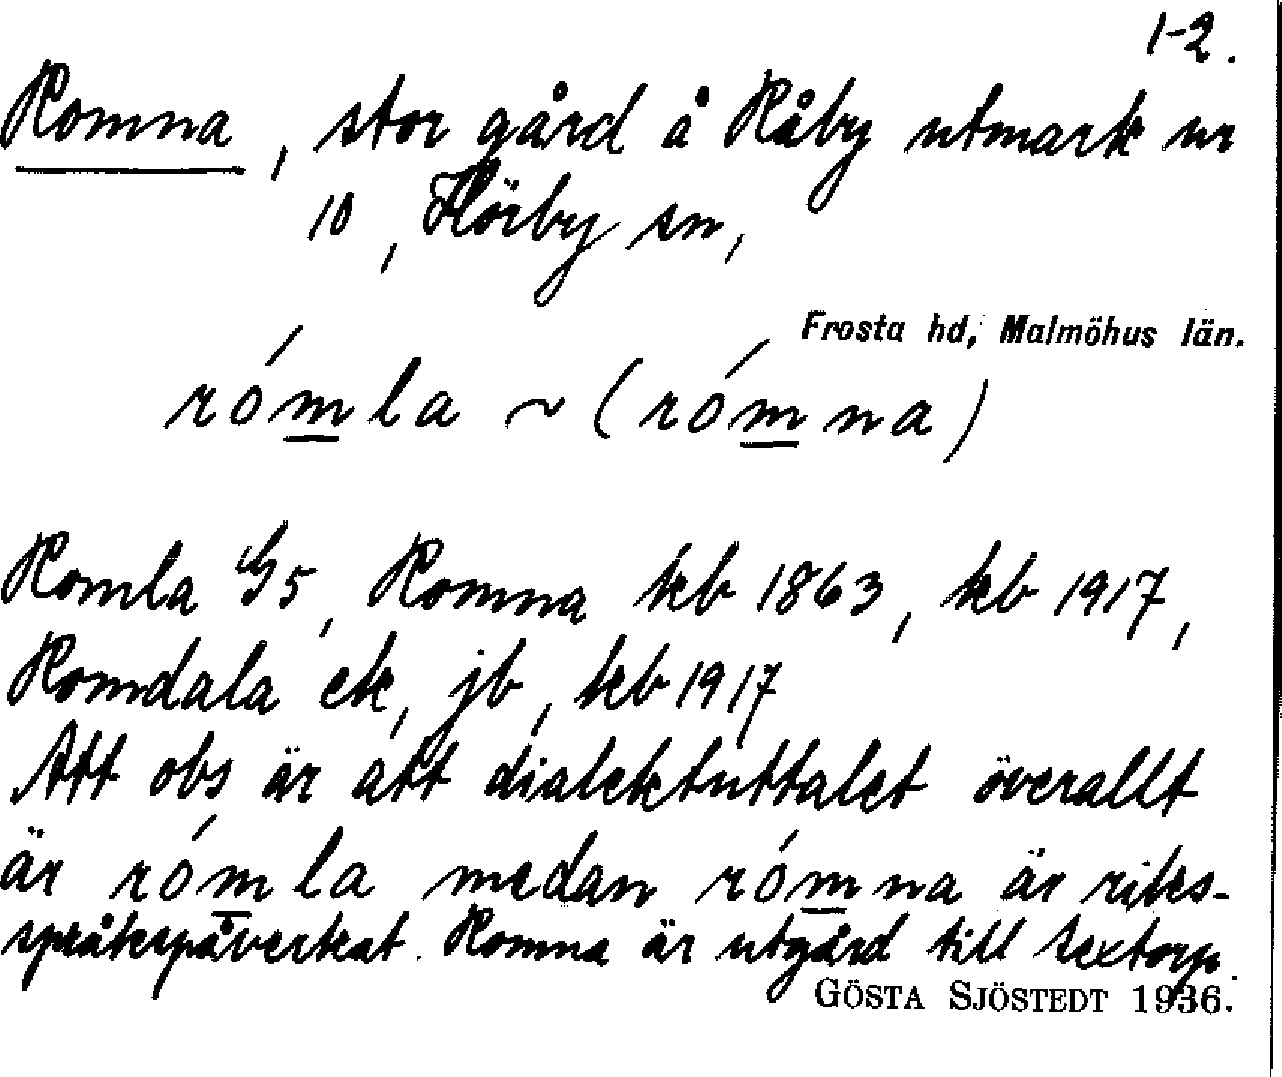 1-2.
Romna, stor gård å Råby utmark nr
10, Hörby sn,
Frosta hd, Malmöhus län.
rómla ~ (rómna)
Romla G5, Romna kb 1863, kb 1917,
Romdala ek, jb, kb 1917
Att obs är att dialektuttalet överallt
är rómla medan rómna är riks-
språkspåverkat. Romna är utgård till Sextorp.
GÖSTA SJÖSTEDT 1936.